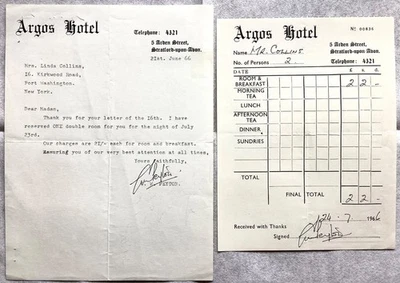 Argos Hotel
Telephone: 4321
5 Arden Street,
Stratford-upon-Avon.
21st. June 66
Mrs. Linda Collins,
16. Kirkwood Road,
Port Washington.
New York.
Dear Madam,
Thank you for your letter of the 16th. I have
reserved ONE double room for you for the night of
July 23rd.
Our charges are 21/- each for room and breakfast.
Assuring you of our very best attention at all times,
Yours faithfully,
Argos Hotel
5 Arden Street,
Stratford-upon-Avon.
Name MR. COLLINS
No. of Persons 2. Telephone: 4321
DATE £ s. d.
ROOM & BREAKFAST 2 2 -
MORNING TEA
LUNCH
AFTERNOON TEA
DINNER
SUNDRIES
TOTAL
FINAL TOTAL 2 2 -
24 . 7 . 1966
Received with Thanks
Signed